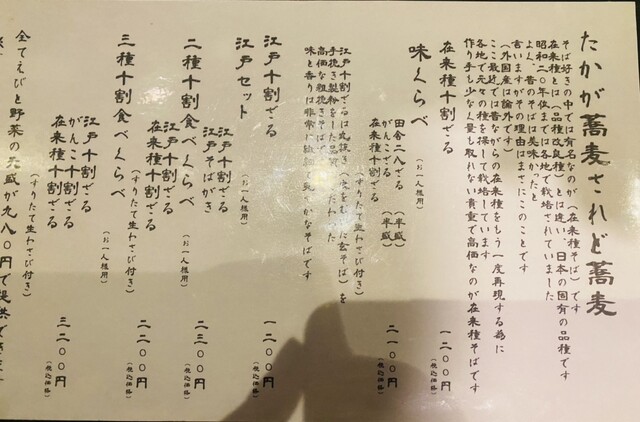 たかが蕎麦されど蕎麦
そば好きの中では有名なのが(在来種そば)です
在来種とは(品種改良種)とは違い、日本の固有の品種です
昭和二〇年位までは各地で栽培されていました
よく、昔のそばは美味かったと
言いますがその理由はまさにこのことです
(外国産は論外です)
ここ最近では昔ながらの在来種をもう一度再現する為に
各地で元々の種を探して栽培しています
作り手も少なく量も取れない貴重で高価なのが在来種そばです
在来種十割ざる 一二〇〇円(税込価格)
味くらべ(お一人様用)
田舎二八ざる(半盛)
がんこざる(半盛)
在来種十割ざる 二一〇〇円(税込価格)
(すりたて生わさび付き)
江戸十割ざるは丸抜き(皮をむいた玄そば)を
手挽き製粉をした品質
高価な粗挽きそば
味と香りは非常に
そばです
江戸十割ざる 一二〇〇円(税込価格)
江戸セット(お一人様用)
江戸十割ざる
江戸そばがき 二三〇〇円(税込価格)
二種十割食べくらべ(お一人様用)
江戸十割ざる
在来種十割ざる 二二〇〇円(税込価格)
(すりたて生わさび付き)
三種十割食べくらべ(お一人様用)
江戸十割ざる
がんこ十割ざる
在来種十割ざる 三二〇〇円(税込価格)
(すりたて生わさび付き)
全てえびと野菜の天盛が九八〇円で提供で